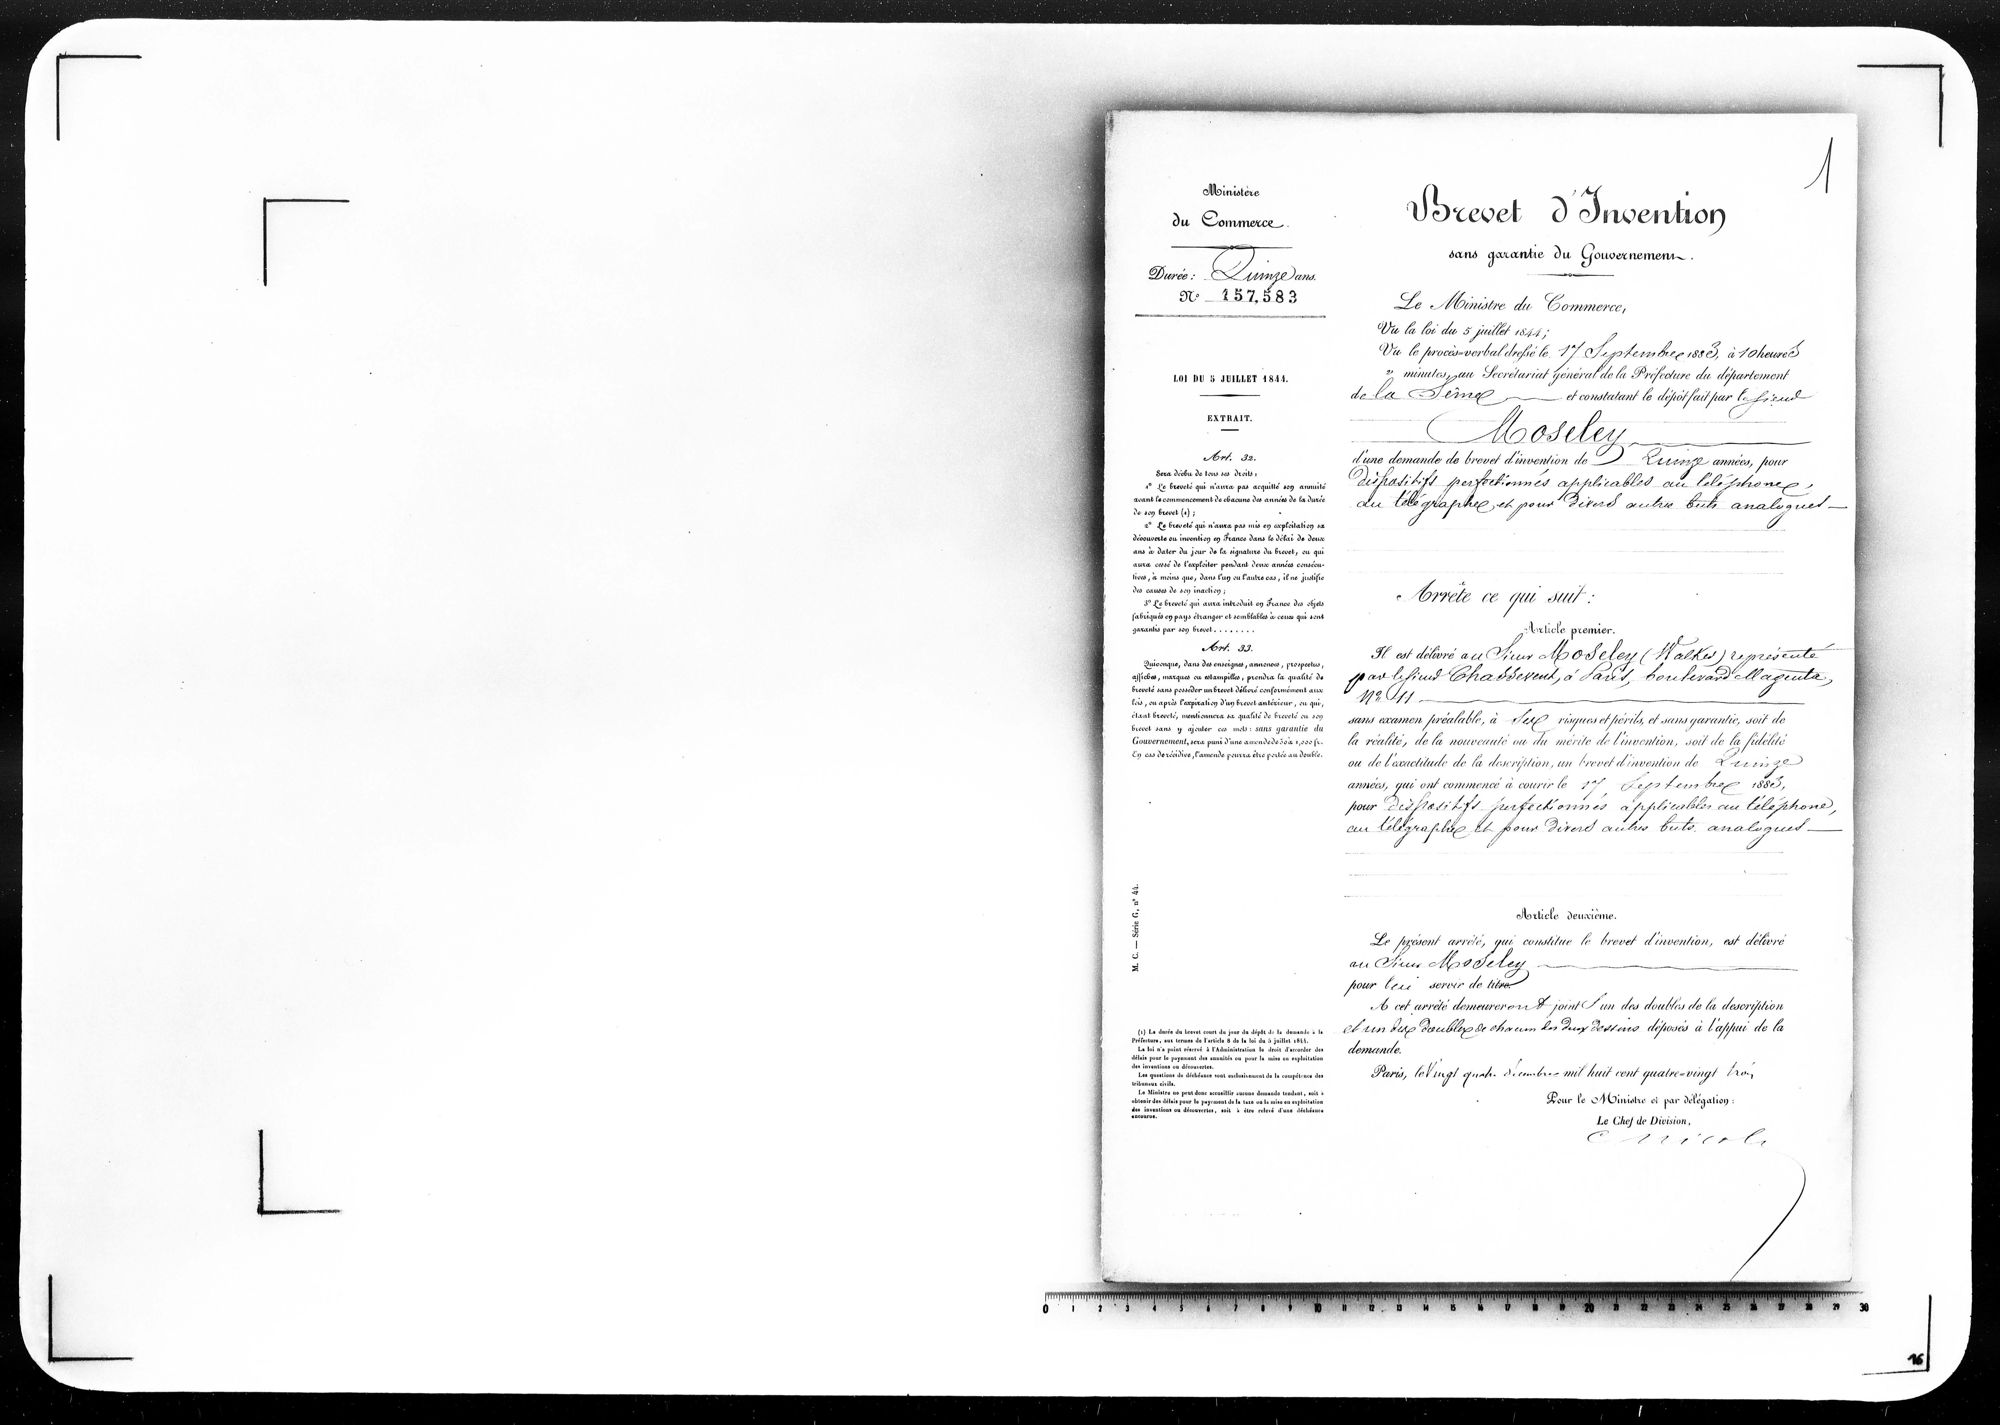 1
Ministère
du Commerce.
Durée : Quinze ans.
N° 157,583
LOI DU 5 JUILLET 1844.
EXTRAIT.
Art. 32.
Sera déchu de tous ses droits :
1° Le breveté qui n'aura pas acquitté son annuité
avant le commencement de chacune des années de la durée
de son brevet (1) ;
2° Le breveté qui n'aura pas mis en exploitation sa
découverte ou invention en France dans le délai de deux
ans à dater du jour de la signature du brevet, ou qui
aura cessé de l'exploiter pendant deux années consécu-
tives, à moins que, dans l'un ou l'autre cas, il ne justifie
des causes de son inaction ;
3° Le breveté qui aura introduit en France des objets
fabriqués en pays étranger et semblables à ceux qui sont
garantis par son brevet........
Art. 33.
Quiconque, dans des enseignes, annonces, prospectus,
affiches, marques ou estampilles, prendra la qualité de
breveté sans posséder un brevet délivré conformément aux
lois, ou après l'expiration d'un brevet antérieur, ou qui,
étant breveté, mentionnera sa qualité de breveté ou son
brevet sans y ajouter ces mots : sans garantie du
Gouvernement, sera puni d'une amende de 50 à 1,000 fr.
En cas de récidive, l'amende pourra être portée au double.
M. C. — Série G, n° 44.
(1) La durée du brevet court du jour du dépôt de la demande à la
Préfecture, aux termes de l'article 8 de la loi du 5 juillet 1844.
La loi n'a point réservé à l'Administration le droit d'accorder des
délais pour le payement des annuités ou pour la mise en exploitation
des inventions ou découvertes.
Les questions de déchéance sont exclusivement de la compétence des
tribunaux civils.
Le Ministre ne peut donc accueillir aucune demande tendant, soit à
obtenir des délais pour le payement de la taxe ou la mise en exploitation
des inventions ou découvertes, soit à être relevé d'une déchéance
encourue.
Brevet d'Invention
sans garantie du Gouvernement.
Le Ministre du Commerce,
Vu la loi du 5 juillet 1844 ;
Vu le procès-verbal dressé le 17 Septembre 1883, à 10 heures
" minutes, au Secrétariat général de la Préfecture du département
de la Seine et constatant le dépôt fait par le Sieur
Moseley
d'une demande de brevet d'invention de Quinze années, pour
Dispositifs perfectionnés applicables au téléphone,
au télégraphe, et pour divers autres buts analogues
Arrête ce qui suit :
Article premier.
Il est délivré au Sieur Moseley (Walker) représenté
par le Sieur Chassevent, à Paris, boulevard Magenta,
N° 11
sans examen préalable, à ses risques et périls, et sans garantie, soit de
la réalité, de la nouveauté ou du mérite de l'invention, soit de la fidélité
ou de l'exactitude de la description, un brevet d'invention de Quinze
années, qui ont commencé à courir le 17 Septembre 1883,
pour dispositifs perfectionnés applicables au téléphone,
au télégraphe et pour divers autres buts analogues
Article deuxième.
Le présent arrêté, qui constitue le brevet d'invention, est délivré
au Sieur Moseley
pour lui servir de titre.
A cet arrêté demeureront joint s un des doubles de la description
et un des doubles de chacun des deux dessins déposés à l'appui de la
demande.
Paris, le Vingt quatre décembre mil huit cent quatre-vingt trois
Pour le Ministre et par délégation :
Le Chef de Division,
0 1 2 3 4 5 6 7 8 9 10 11 12 13 14 15 16 17 18 19 20 21 22 23 24 25 26 27 28 29 30
16